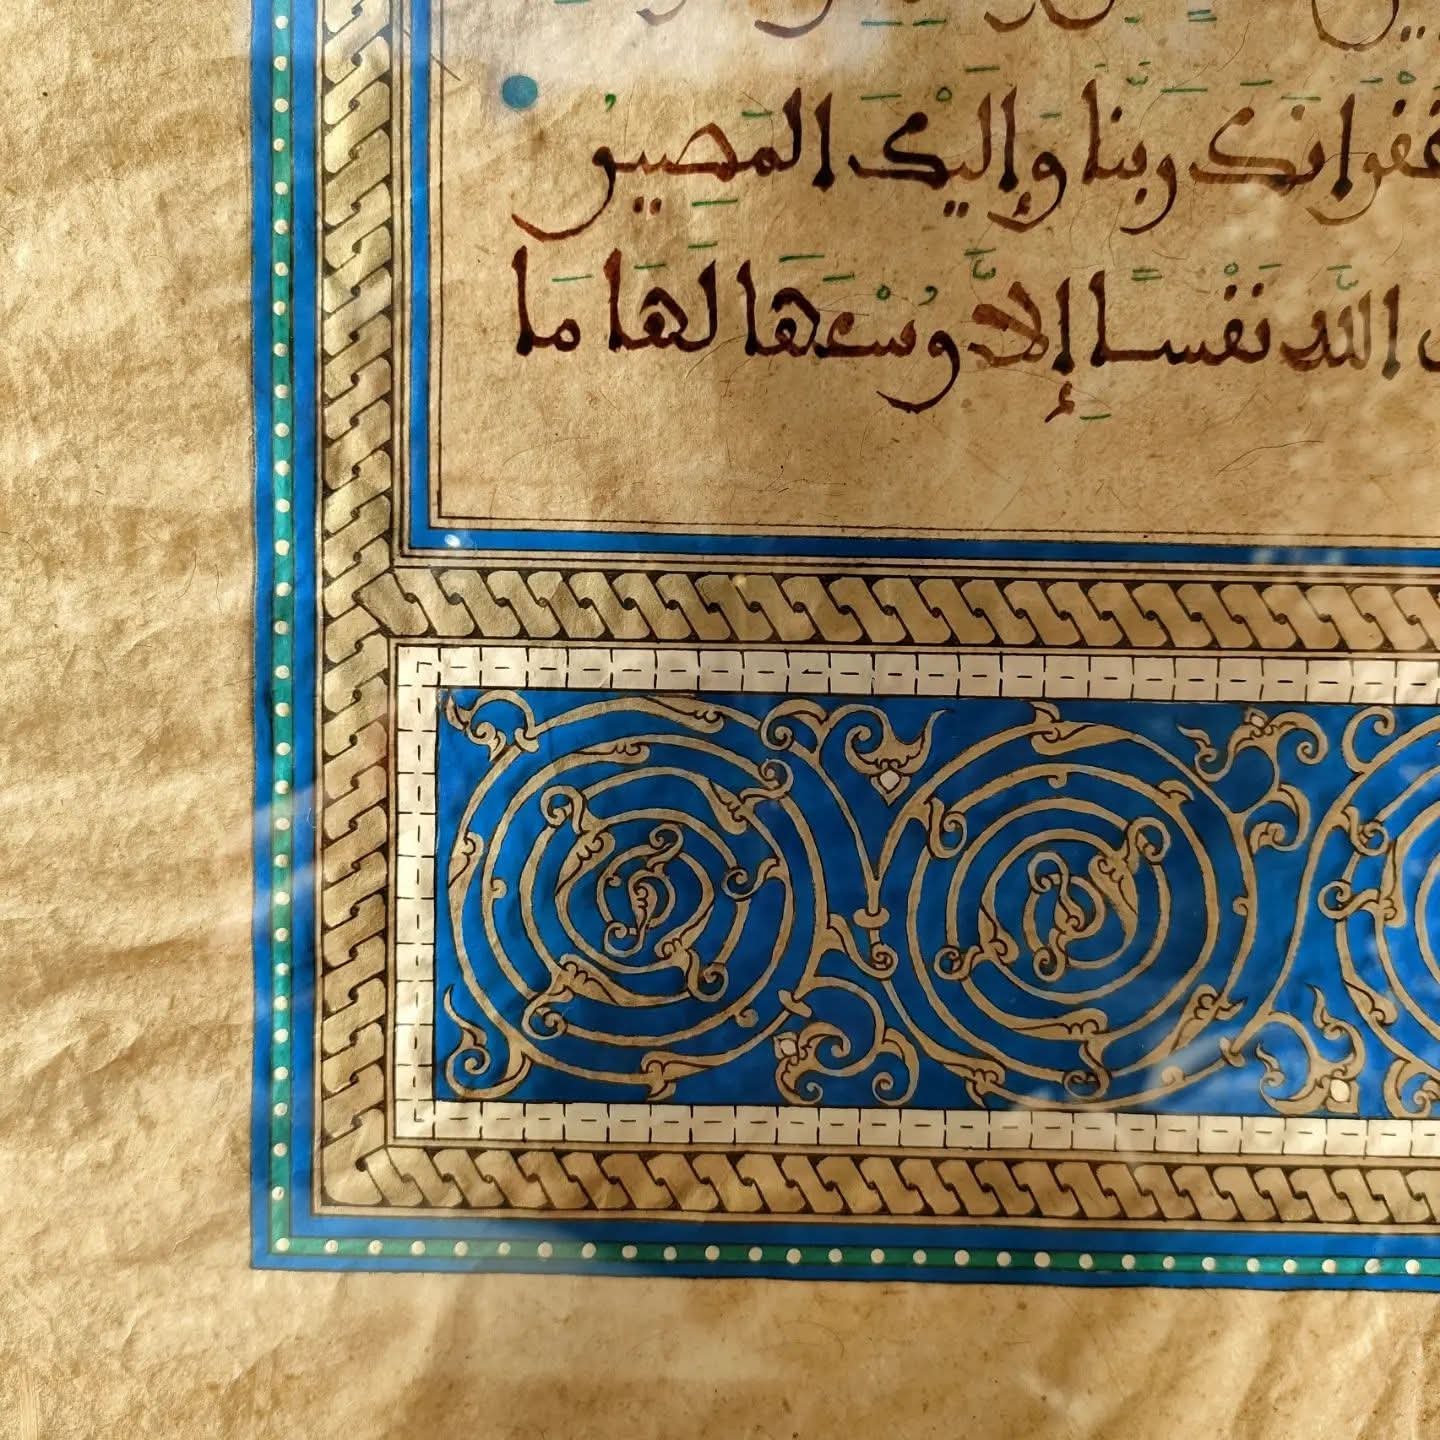 غُفْرَانَكَ رَبَّنَا وَإِلَيْكَ الْمَصِيرُ
اللَّهُ نَفْسًا إِلَّا وُسْعَهَا لَهَا مَا